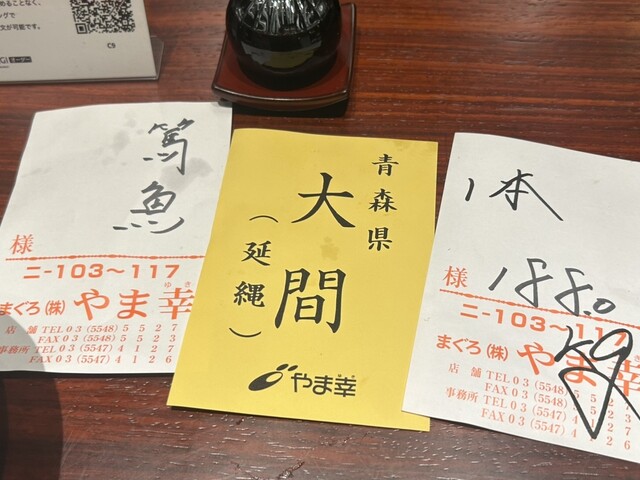 めることなく、
ッグで
文が可能です。
C9
篤
魚
様
ニ-103～117
まぐろ(株)やま幸
ゆき
店舗 TEL 03 (5548) 5527
FAX 03 (5548) 5523
事務所 TEL 03 (5547) 4127
FAX 03 (5547) 4126
青森県
大間
(延縄)
やま幸
ゆき
1本
様
188.0
kg
ニ-103～117
まぐろ(株)やま幸
店舗 TEL 03 (5548) 5527
FAX 03 (5548) 5523
事務所 TEL 03 (5547) 4127
FAX 03 (5547) 4126